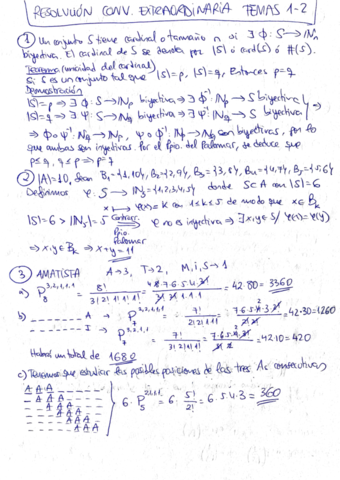 RESOLUCIÓN CONV. EXTRAORDINARIA TEMAS 1-2
① Un conjunto S tiene cardinal o tamaño n si ∃ φ: S → ℕn
biyectiva. El cardinal de S se denota por |S| ó card(S) ó #(S).
Teorema (unicidad del cardinal)
Si S es un conjunto tal que |S|=p, |S|=q, Entonces p=q
Demostración
|S|=p ⇒ ∃ φ: S → ℕp biyectiva ⇒ ∃ φ⁻¹: ℕp → S biyectiva
|S|=q ⇒ ∃ ψ: S → ℕq biyectiva ⇒ ∃ ψ⁻¹: ℕq → S biyectiva
⇒ φ∘ψ⁻¹: ℕq → ℕp, ψ∘φ⁻¹: ℕp → ℕq son biyectivas, por lo
que ambas son inyectivas. Por el Ppio. del Palomar, se deduce que
p≤q, q≤p ⇒ p=q
② |A|=10, Sean B₁={1,10}, B₂={2,9}, B₃={3,8}, B₄={4,7}, B₅={5,6}
Definimos φ: S → ℕ₅={1,2,3,4,5} donde S⊂A con |S|=6
x ↦ φ(x)=k con 1≤k≤5 de modo que x∈Bk
|S|=6 > |ℕ₅|=5 ⇒ φ no es inyectiva ⇒ ∃ x,y∈S / φ(x)=φ(y)
Ppio. Palomar
⇒ x,y∈Bk ⇒ x+y=11
③ AMATISTA A→3, T→2, M,i,S→1
a) P₈^{3,2,1,1,1} = 8!/(3!2!1!1!1!) = = 42·80 = 3360
b) _ _ _ _ _ _ _ A → P₇^{2,2,1,1,1} = 7!/(2!2!1!1!1!) = = 42·30=1260
_ _ _ _ _ _ _ I → P₇^{3,2,1,1} = 7!/(3!2!1!1!) = = 42·10=420
Habrá un total de 1680
c) Tenemos que estudiar las posibles posiciones de las tres As consecutivas
A A A _ _ _ _ _
_ A A A _ _ _ _
_ _ A A A _ _ _
_ _ _ A A A _ _
_ _ _ _ A A A _
_ _ _ _ _ A A A
6·P₅^{2,1,1,1} = 6·5!/2! = 6·5·4·3 = 360